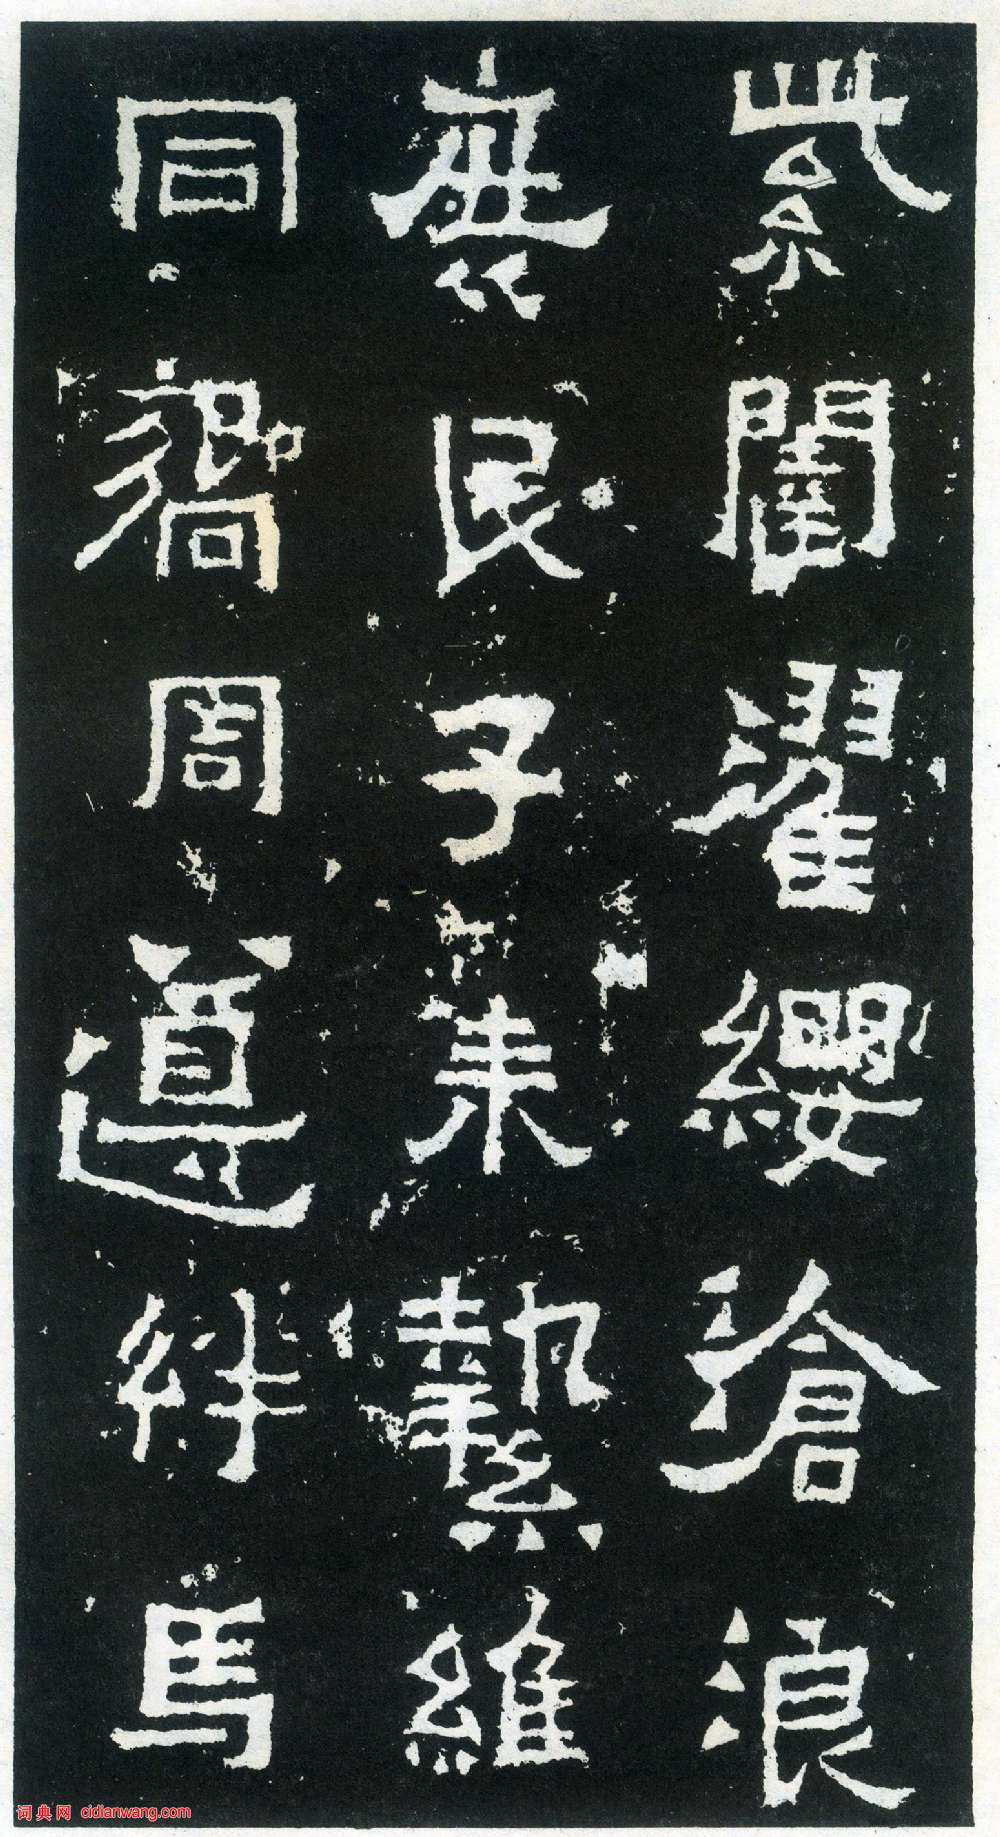 紫闥濯纓滄浪
庶民子来縶維
同嚮周遵絆馬
词典网 cidianwang.com